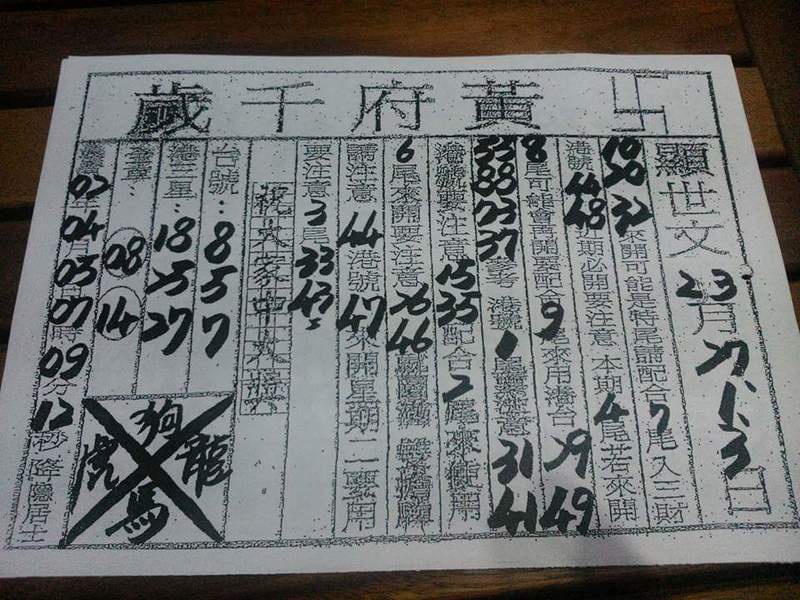 卐黃府千歲
顯世文 23 月 27 1. 3 日
10 20 32 來開可能是特尾請配合 7 尾入三財
港號 44 48 期必開要注意 本期 4 尾若來開
8 尾可能會再開牽配合 9 尾來用港台 29 49
33 88 03 37 參考 港號 1 尾 注意 31 41
港號要注意 15 35 配合 2 尾來使用
6 尾來開要注意 26 46
請注意 44 港號 47 來開星期二要用
要注意 3 尾 33 43
祝大家中大獎
台號: 8 5 7
港三星: 18 25 27
08 14
02 04 月 05 07 時 09 分 12 秒 降
狗
虎 龍
馬